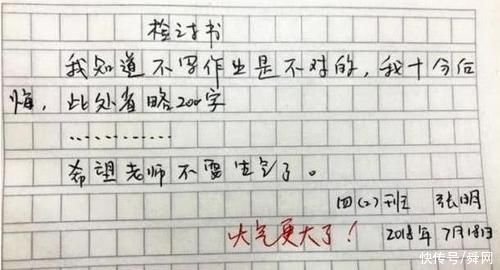 检讨书
我知道不写作业是不对的，我十分后
悔，此处省略200字
…………
希望老师不要生气了。
四(2)班 张明
火气更大了！ 2018年7月18日
快传号/舜网